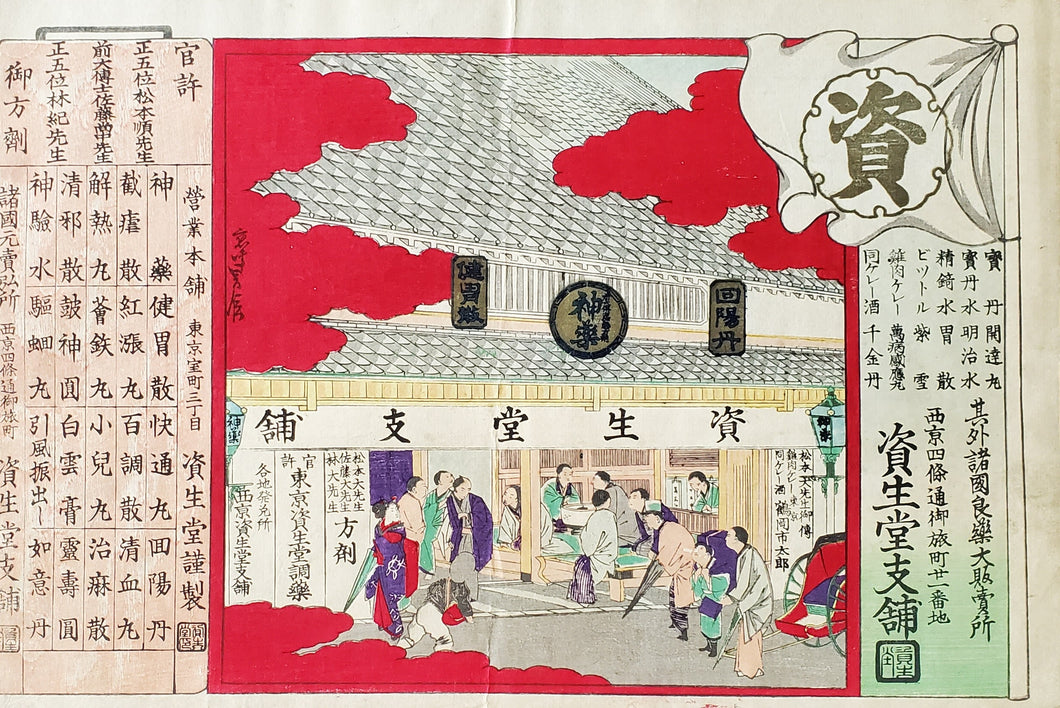 資
寳丹開達丸
寳丹水明治水
精錡水胃散
ビットル紫雪
雞肉ケレー萬病感應丸
同ケレ酒千金丹
其外諸國良藥大販賣所
西京四條通御旅町廿一番地
資生堂支舖
回陽丹
神藥
健胃散
資生堂支舖
神藥
神藥
松本大先生御傳
雞肉ケレー東京
同ケレ酒鶴岡市太郎
松本大先生
佐藤大先生
林大先生
方劑
官許
東京資生堂調藥
各地発兌所
西京資生堂支舖
官許
正五位松本順先生
前大博士佐藤尚先生
正五位林紀先生
御方劑
營業本舖 東京室町三丁目 資生堂謹製
神藥健胃散快通丸回陽丹
截瘧散紅漲丸百調散清血丸
解熱丸蒼鉄丸小兒丸治麻散
清邪散鼓神圓白雲膏靈壽圓
神驗水驅蛔丸引風振出シ如意丹
諸國元賣弘所 西京四條通御旅町 資生堂支舖